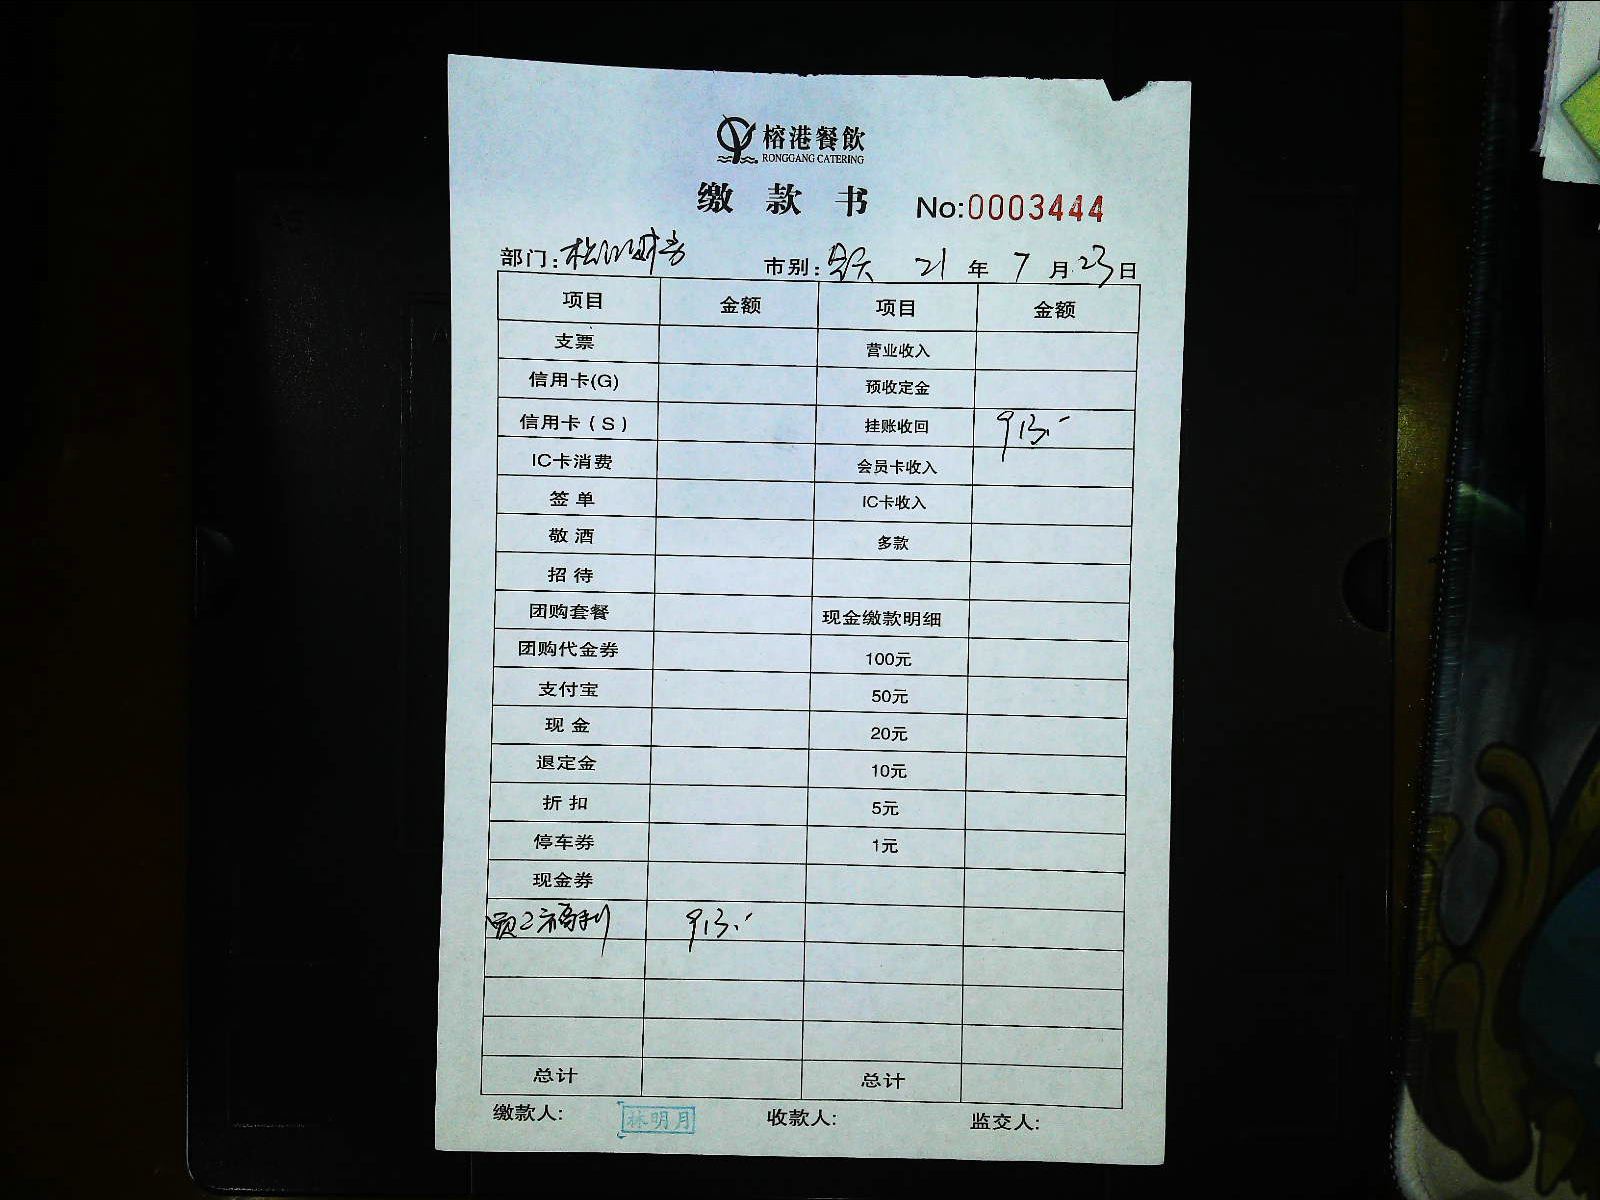 榕港餐飲
RONGGANG CATERING
缴 款 书 No:0003444
部门: 松江财务 市别: 21 年 7 月 23 日
项目 金额 项目 金额
支票 营业收入
信用卡(G) 预收定金
信用卡（S） 挂账收回 913.-
IC卡消费 会员卡收入
签 单 IC卡收入
敬 酒 多款
招 待
团购套餐 现金缴款明细
团购代金券 100元
支付宝 50元
现 金 20元
退定金 10元
折 扣 5元
停车券 1元
现金券
员工福利 913.-
总计 总计
缴款人: 林明月 收款人: 监交人: